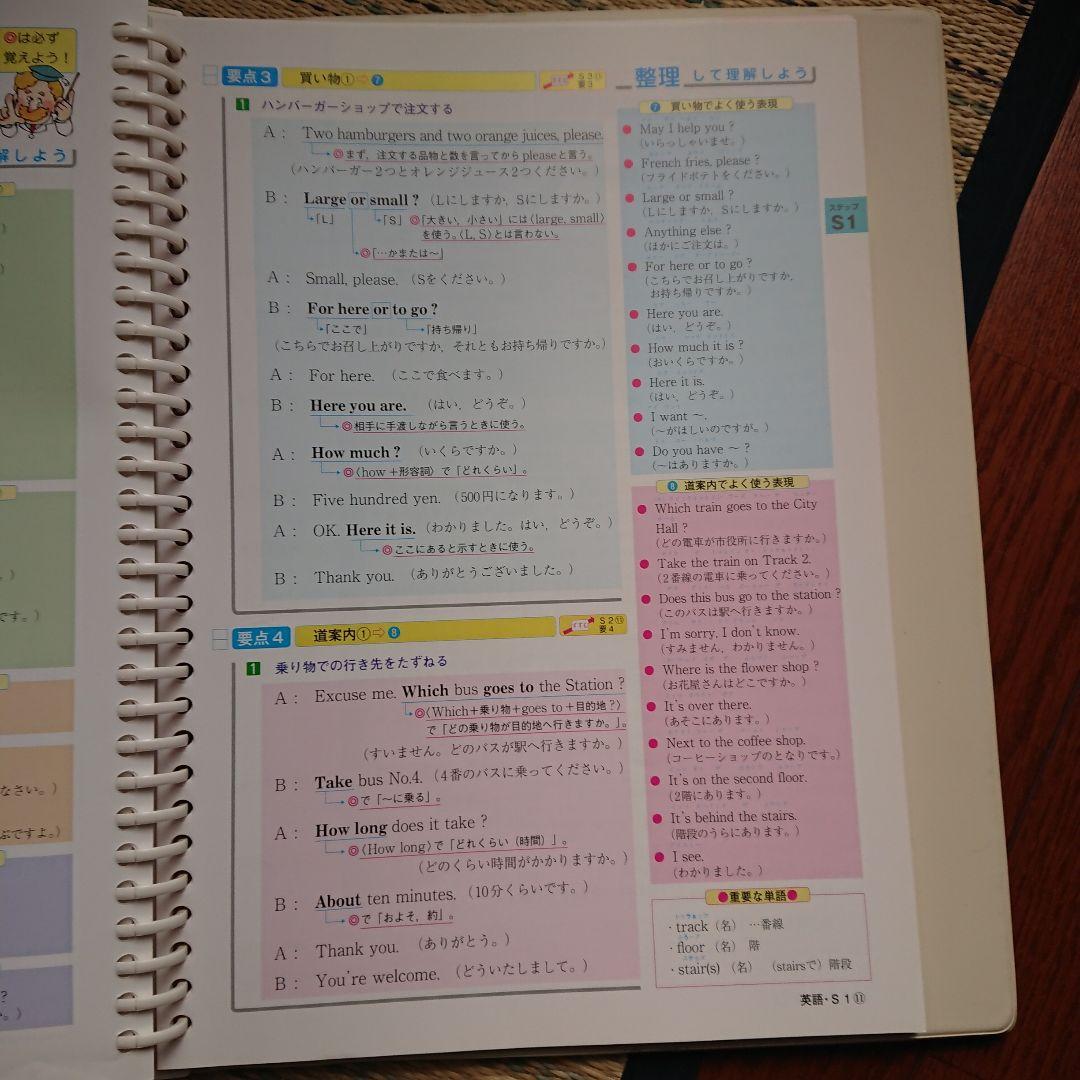 ◎は必ず
覚えよう！
解しよう
です。）
なさい。）
ぶですよ。）
？
。）
要点3 買い物①⇨❼
S 3⑪
要3
1 ハンバーガーショップで注文する
A： Two hamburgers and two orange juices, please.
◎まず，注文する品物と数を言ってからpleaseと言う。
（ハンバーガー2つとオレンジジュース2つください。）
B： Large or small ?（Lにしますか，Sにしますか。）
「L」 「S」 ◎「大きい，小さい」には〈large, small〉
を使う。〈L, S〉とは言わない。
◎「…かまたは～」
A： Small, please.（Sをください。）
B： For here or to go ?
「ここで」 「持ち帰り」
（こちらでお召し上がりですか，それともお持ち帰りですか。）
A： For here.（ここで食べます。）
B： Here you are.（はい，どうぞ。）
◎相手に手渡しながら言うときに使う。
A： How much ?（いくらですか。）
◎〈how＋形容詞〉で「どれくらい」。
B： Five hundred yen.（500円になります。）
A： OK. Here it is.（わかりました。はい，どうぞ。）
◎ここにあると示すときに使う。
B： Thank you.（ありがとうございました。）
要点4 道案内①⇨❽
S 2⑪
要4
1 乗り物での行き先をたずねる
A： Excuse me. Which bus goes to the Station ?
◎〈Which＋乗り物＋goes to＋目的地？〉
で「どの乗り物が目的地へ行きますか。」。
（すいません。どのバスが駅へ行きますか。）
B： Take bus No.4.（4番のバスに乗ってください。）
◎で「～に乗る」。
A： How long does it take ?
◎〈How long〉で「どれくらい（時間）」。
（どのくらい時間がかかりますか。）
B： About ten minutes.（10分くらいです。）
◎で「およそ，約」。
A： Thank you.（ありがとう。）
B： You're welcome.（どういたしまして。）
整理 して理解しよう
❼ 買い物でよく使う表現
● May I help you ?
（いらっしゃいませ。）
● French fries, please ?
（フライドポテトをください。）
● Large or small ?
（Lにしますか，Sにしますか。）
● Anything else ?
（ほかにご注文は。）
● For here or to go ?
（こちらでお召し上がりですか，
お持ち帰りですか。）
● Here you are.
（はい，どうぞ。）
● How much it is ?
（おいくらですか。）
● Here it is.
（はい，どうぞ。）
● I want ～.
（～がほしいのですが。）
● Do you have ～ ?
（～はありますか。）
❽ 道案内でよく使う表現
● Which train goes to the City
Hall ?
（どの電車が市役所に行きますか。）
● Take the train on Track 2.
（2番線の電車に乗ってください。）
● Does this bus go to the station ?
（このバスは駅へ行きますか。）
● I'm sorry, I don't know.
（すみません，わかりません。）
● Where is the flower shop ?
（お花屋さんはどこですか。）
● It's over there.
（あそこにあります。）
● Next to the coffee shop.
（コーヒーショップのとなりです。）
● It's on the second floor.
（2階にあります。）
● It's behind the stairs.
（階段のうらにあります。）
● I see.
（わかりました。）
●重要な単語●
・track（名） …番線
・floor（名） 階
・stair(s)（名）（stairsで）階段
ステップ
S1
英語・S 1⑪